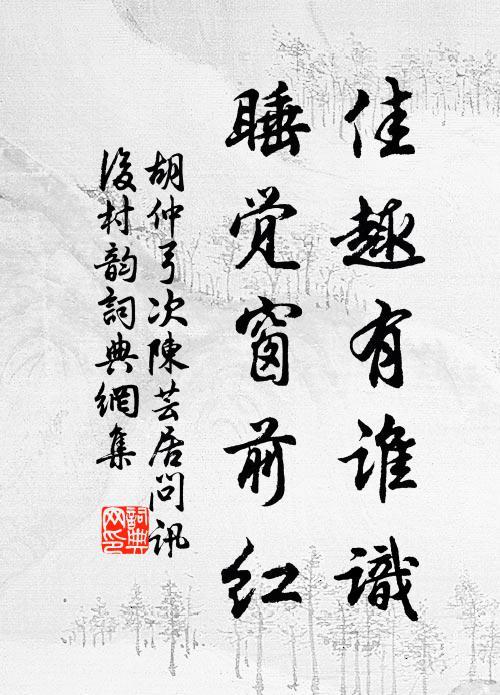 佳趣有谁識
睡觉窗前红
胡仲弓次陳芸居問訊
後村韵詞典網集
詞典
网印